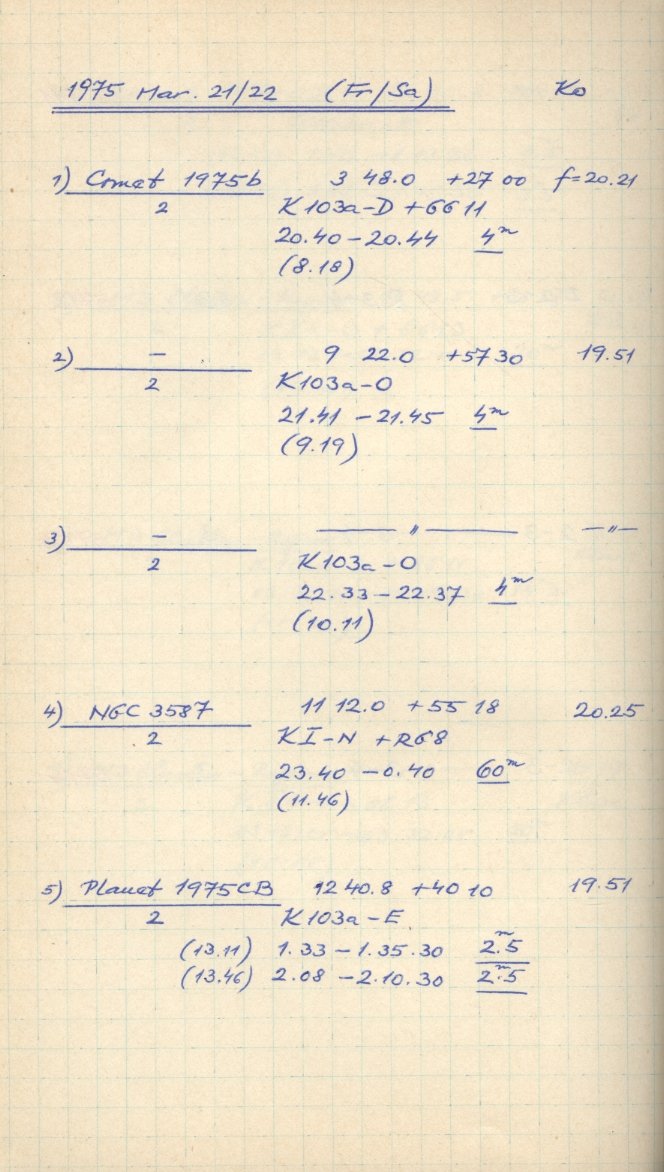 1975 Mar. 21/22 (Fr/Sa) Ko
1) Comet 1975b 3 48.0 +27 00 f=20.21
2 K 103a-D + GG 11
20.40 – 20.44 4m
(8.18)
2) — 9 22.0 +57 30 19.51
2 K103a-O
21.41 – 21.45 4m
(9.19)
3) — — " — — " —
2 K103a-O
22.33 – 22.37 4m
(10.11)
4) NGC 3587 11 12.0 +55 18 20.25
2 KI-N + RG8
23.40 – 0.40 60m
(11.46)
5) Planet 1975CB 12 40.8 +40 10 19.51
2 K103a-E
(13.11) 1.33 – 1.35.30 2m.5
(13.46) 2.08 – 2.10.30 2m.5